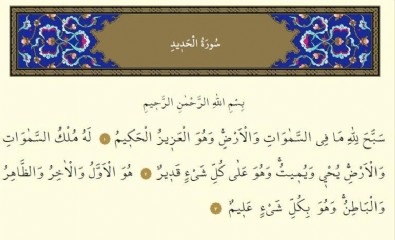 سُورَةُ الْحَدِيدِ
بِسْمِ اللهِ الرَّحْمٰنِ الرَّحِيمِ
سَبَّحَ لِلّٰهِ مَا فِى السَّمٰوَاتِ وَالْاَرْضِۚ وَهُوَ الْعَزِيزُ الْحَكِيمُ ١ لَهُ مُلْكُ السَّمٰوَاتِ
وَالْاَرْضِۚ يُحْيٖ وَيُمِيتُۚ وَهُوَ عَلٰى كُلِّ شَىْءٍ قَدِيرٌ ٢ هُوَ الْاَوَّلُ وَالْاٰخِرُ وَالظَّاهِرُ
وَالْبَاطِنُۚ وَهُوَ بِكُلِّ شَىْءٍ عَلِيمٌ ٣